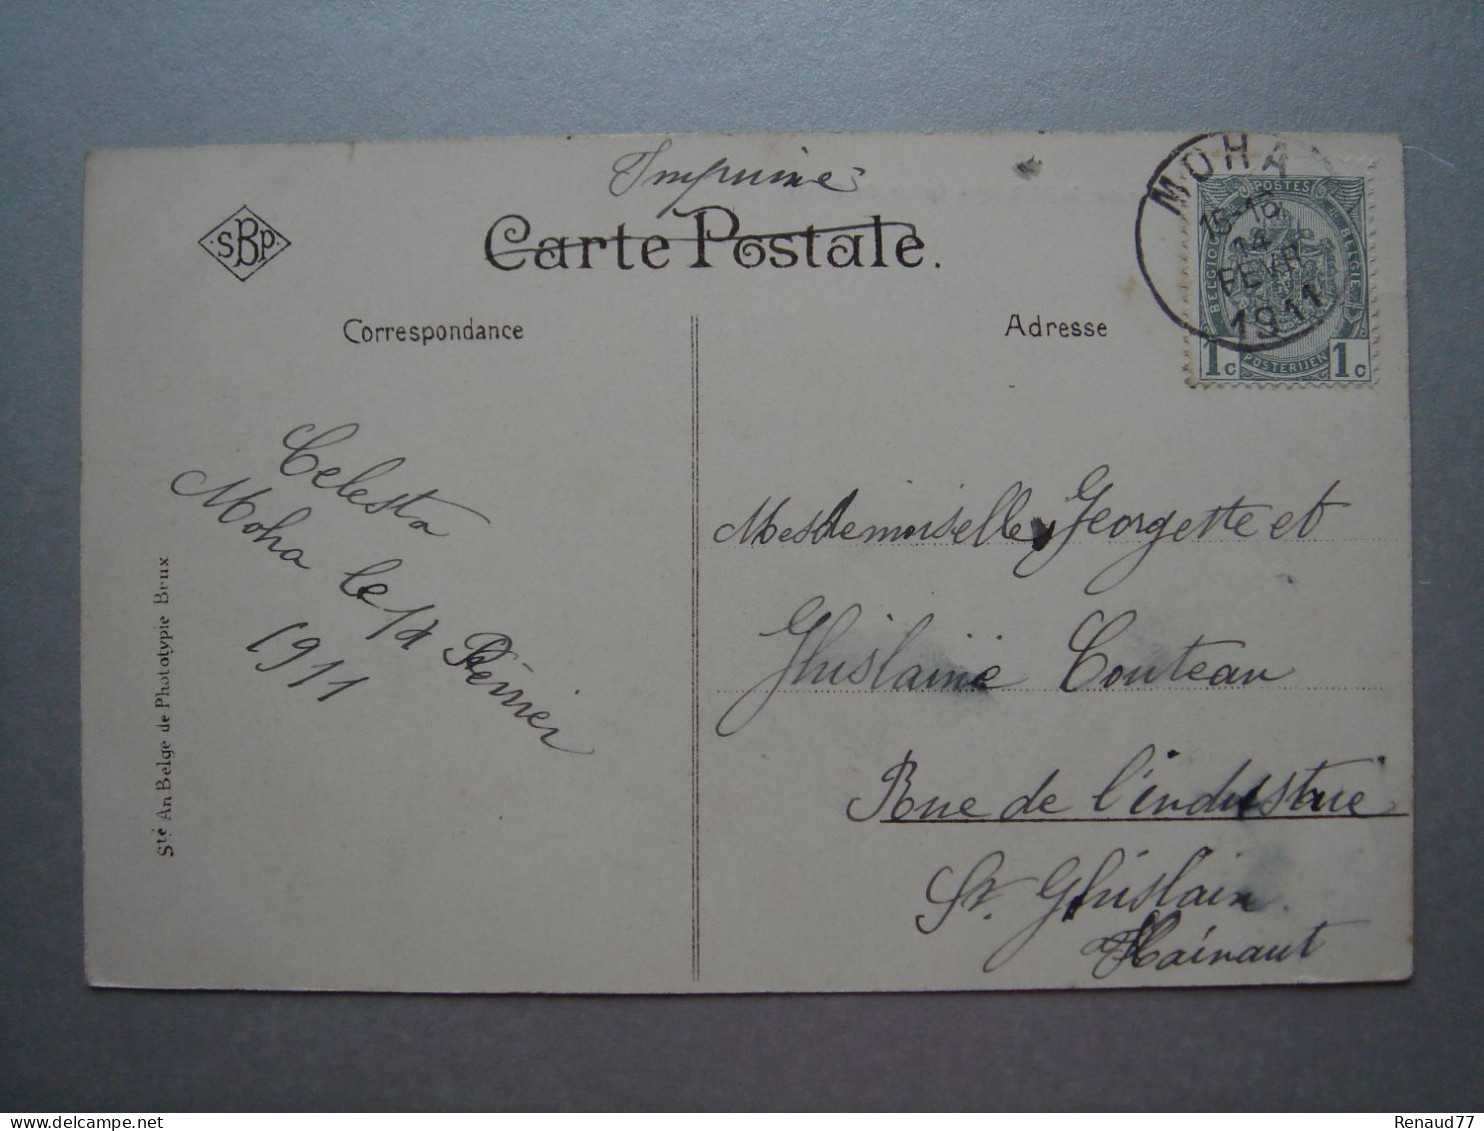 Imprimé
SBP
Carte Postale.
Correspondance
Adresse
MOHA
15-16
14
FEVR
1911
POSTES
BELGIQUE
BELGIE
1c
POSTERIJEN
1c
Celesta
Moha le 14 Février
1911
Mesdemoiselles Georgette et
Ghislaine Couteau
Rue de l'industrie
St. Ghislain
Hainaut
Sté An Belge de Phototypie Brux
Renaud77